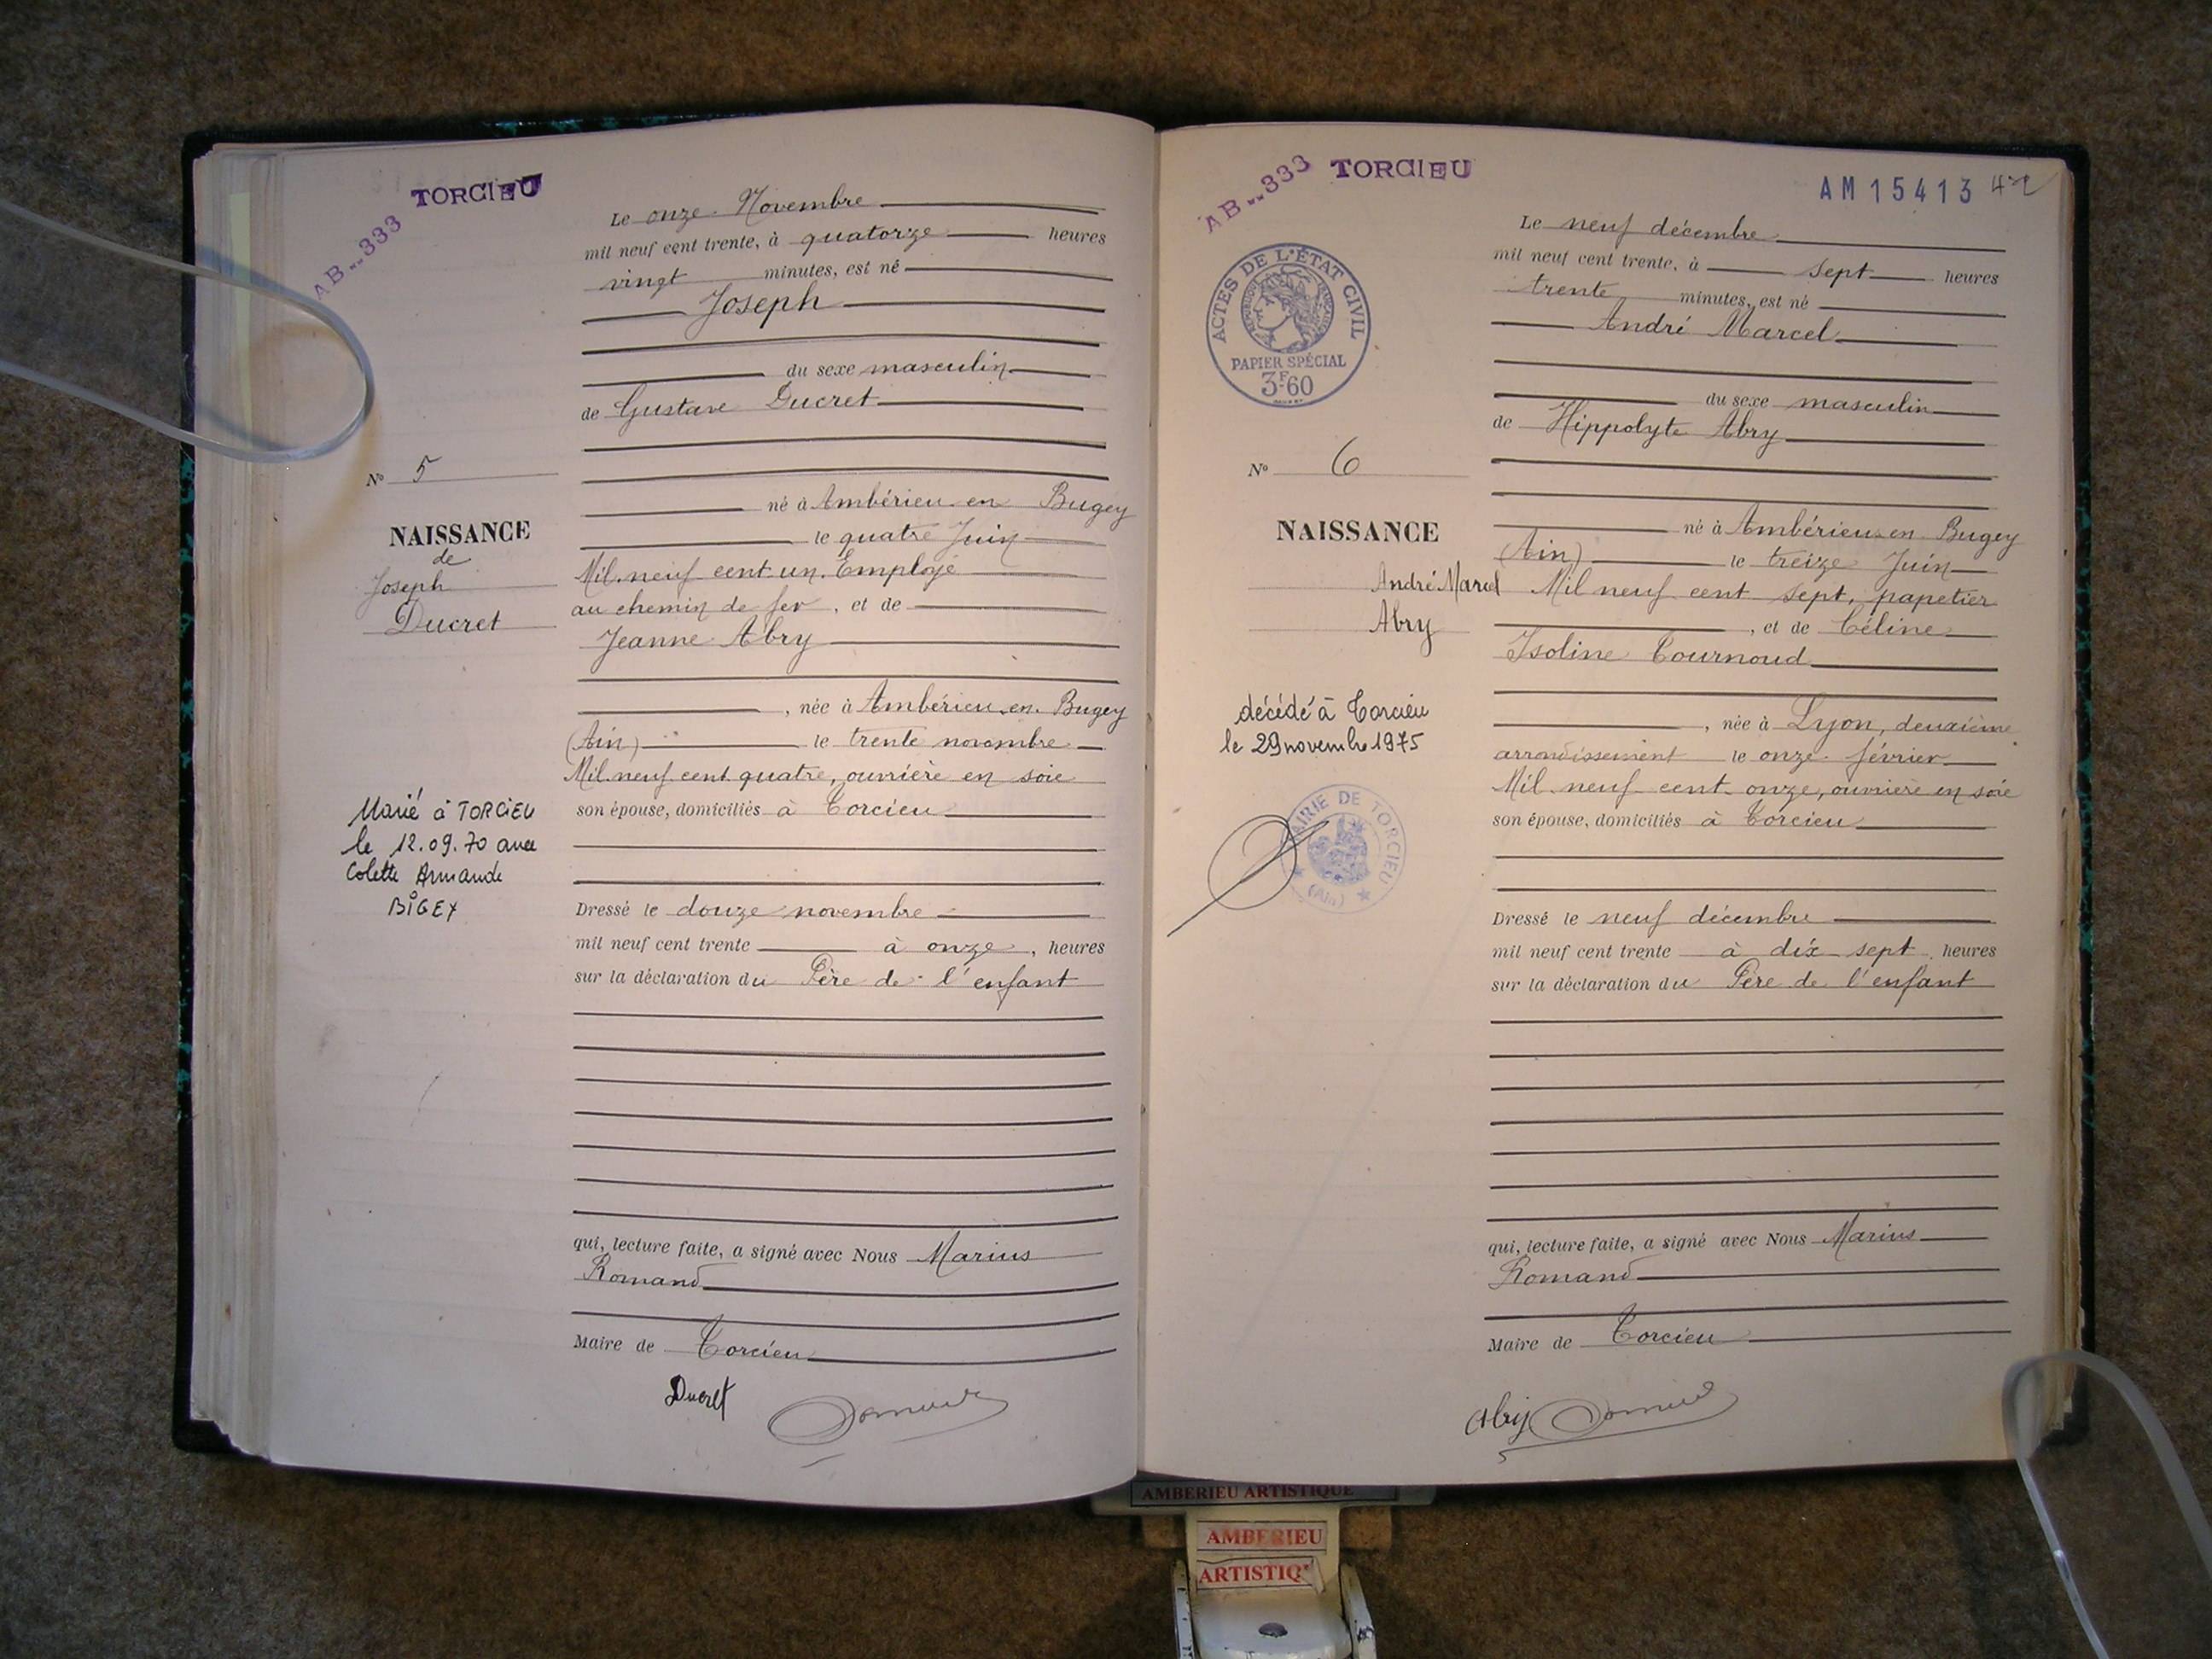 TORCIEU
AB..333
Le onze Novembre
mil neuf cent trente, à quatorze heures
vingt minutes, est né
Joseph
du sexe masculin
de Gustave Ducret
N° 5
né à Ambérieu en Bugey
NAISSANCE
de
Joseph
Ducret
le quatre Juin
Mil neuf cent un. Employé
au chemin de fer, et de
Jeanne Abry
, née à Ambérieu en Bugey
(Ain) le trente novembre
Mil neuf cent quatre, ouvrière en soie
son épouse, domiciliés à Torcieu
Marié à TORCIEU
le 12.09.70 avec
Colette Armande
BIGEY
Dressé le douze novembre
mil neuf cent trente à onze, heures
sur la déclaration du Père de l'enfant
qui, lecture faite, a signé avec Nous Marius
Romand
Maire de Torcieu
Ducret
AB..333 TORCIEU
AM 15413 42
Le neuf décembre
mil neuf cent trente, à sept heures
trente minutes, est né
André Marcel
ACTES DE L'ÉTAT CIVIL
PAPIER SPÉCIAL
3F.60
du sexe masculin
de Hippolyte Abry
N° 6
né à Ambérieu en Bugey
NAISSANCE
André Marcel
Abry
(Ain) le treize Juin
Mil neuf cent sept, papetier
, et de Céline
Isoline Tournoud
, née à Lyon, deuxième
arrondissement le onze février
Mil neuf cent onze, ouvrière en soie
son épouse, domiciliés à Torcieu
décédé à Torcieu
le 29 novembre 1975
MAIRIE DE TORCIEU
(Ain)
Dressé le neuf décembre
mil neuf cent trente à dix sept heures
sur la déclaration du Père de l'enfant
qui, lecture faite, a signé avec Nous Marius
Romand
Maire de Torcieu
Abry
AMBERIEU ARTISTIQUE
AMBERIEU
ARTISTIQ